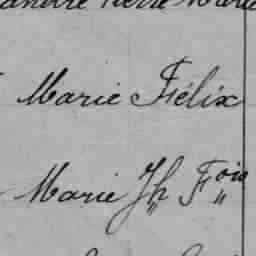 Pierre Marie
Marie Félix
Marie Jh Fois